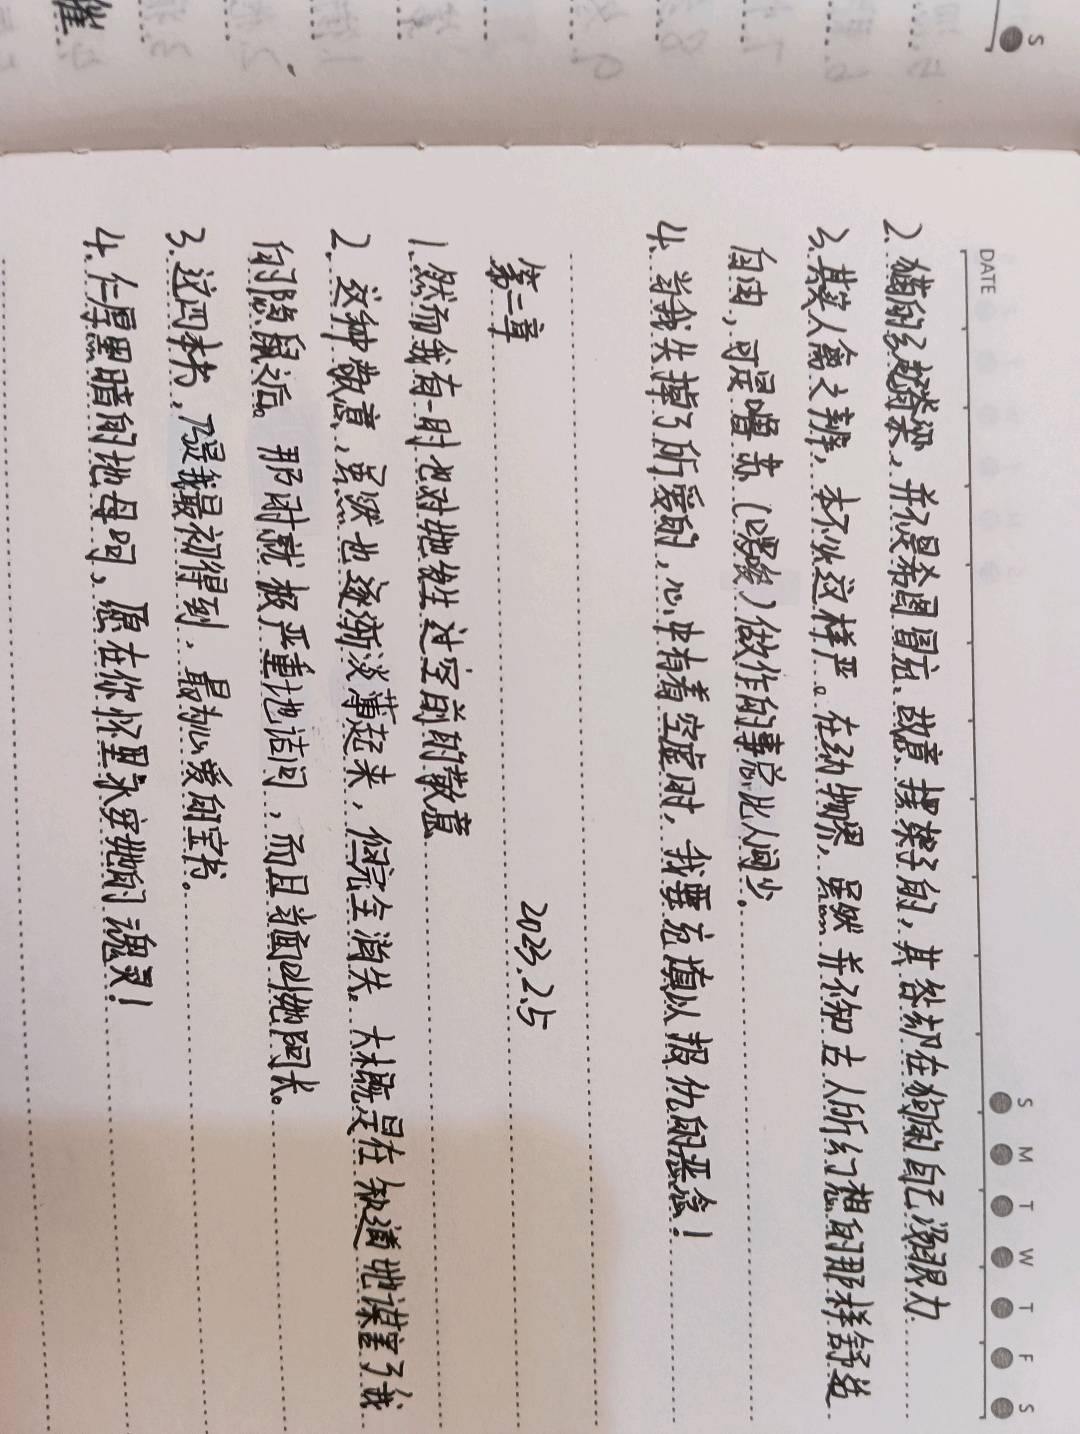 DATE
S M T W T F S
2. 猫的了起来，并不是希图冒充、故意摆架子的，其咎却在狗的自己没眼力
3. 其实人禽之辨，本不必这样严。在动物界，虽然并不如古人所幻想的那样舒适
自由，可是噜苏（啰唆）做作的事总比人间少。
4. 当我失掉了所爱的，心中有着空虚时，我要充填以报仇的恶念！
第二章 2023.2.5
1. 然而我有一时也对她发生过空前的敬意
2. 这种敬意，虽然也逐渐淡薄起来，但完全消失。大概是在知道她谋害了我
的隐鼠之后。那时就极严重地诘问，而且当面叫她阿长。
3. 这四本书，乃是我最初得到，最为心爱的宝书。
4. 仁厚黑暗的地母呵，愿在你怀里永安她的魂灵！